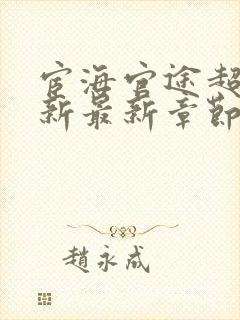 宦海官途超
新最新章節
趙永成